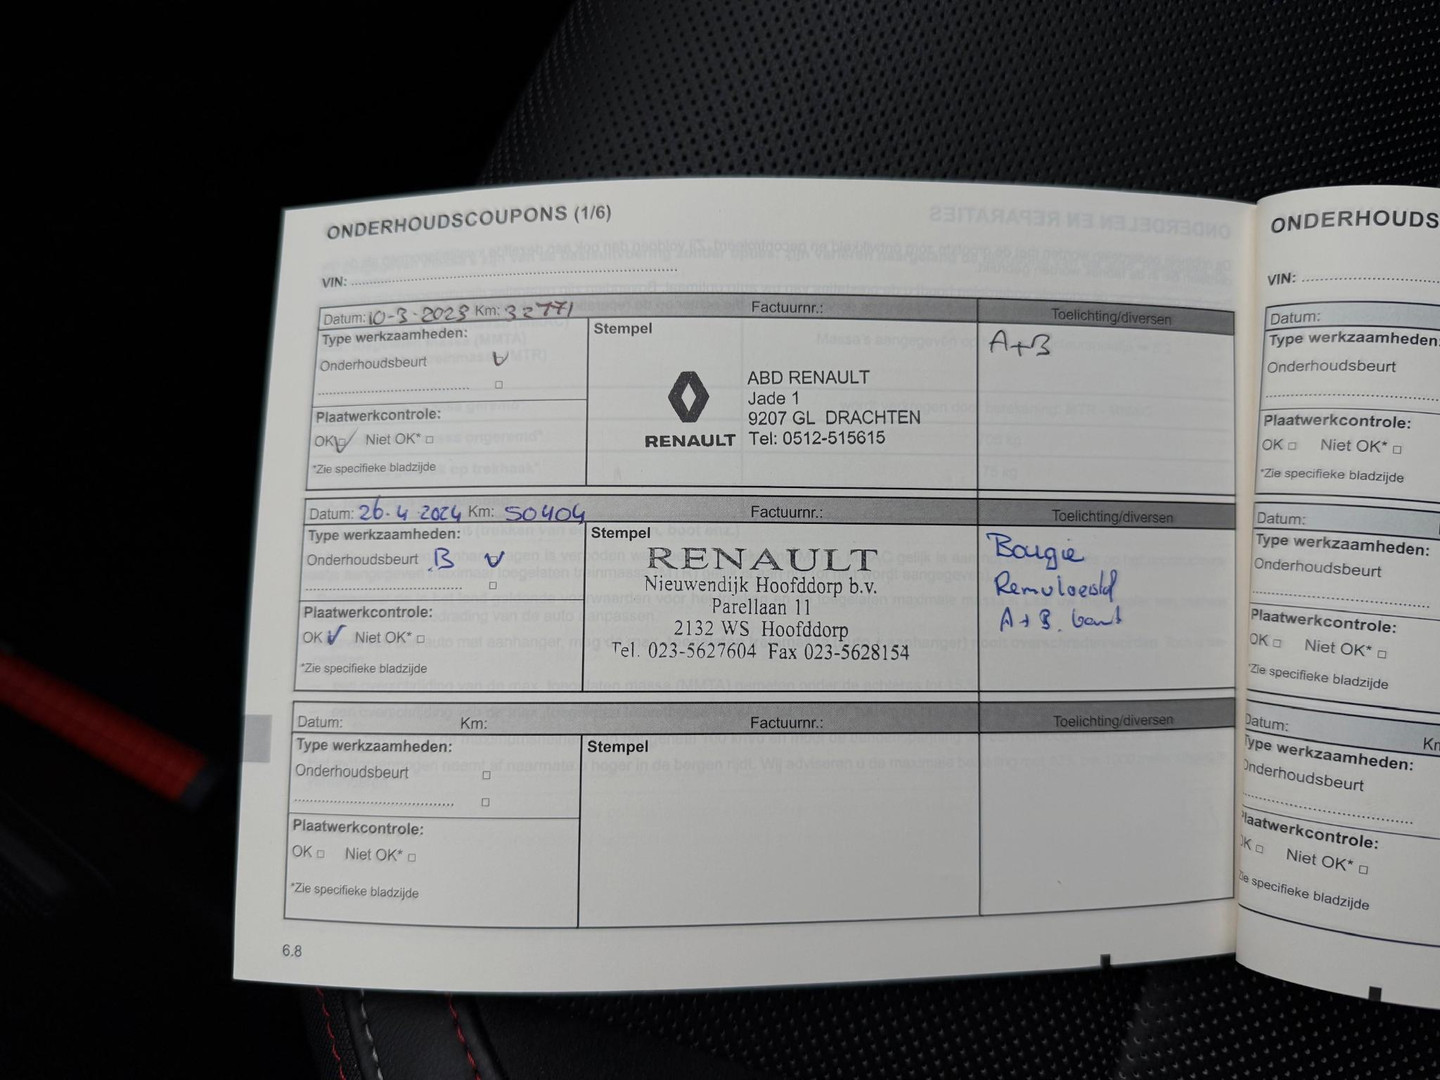 ONDERHOUDSCOUPONS (1/6)
VIN:
Datum: 10-3-2023 Km: 32771 Factuurnr.: Toelichting/diversen
Type werkzaamheden:
Onderhoudsbeurt
Plaatwerkcontrole:
OK Niet OK*
*Zie specifieke bladzijde
Stempel
RENAULT
ABD RENAULT
Jade 1
9207 GL DRACHTEN
Tel: 0512-515615
A+B
Datum: 26-4 2024 Km: 50404 Factuurnr.: Toelichting/diversen
Type werkzaamheden:
Onderhoudsbeurt B
Plaatwerkcontrole:
OK Niet OK*
*Zie specifieke bladzijde
Stempel
RENAULT
Nieuwendijk Hoofddorp b.v.
Parellaan 11
2132 WS Hoofddorp
Tel. 023-5627604 Fax 023-5628154
Bougie
Remvloeistof
A+B. beurt
Datum: Km: Factuurnr.: Toelichting/diversen
Type werkzaamheden:
Onderhoudsbeurt
Plaatwerkcontrole:
OK Niet OK*
*Zie specifieke bladzijde
Stempel
6.8
ONDERHOUDS
VIN:
Datum:
Type werkzaamheden:
Onderhoudsbeurt
Plaatwerkcontrole:
OK Niet OK*
*Zie specifieke bladzijde
Datum:
Type werkzaamheden:
Onderhoudsbeurt
Plaatwerkcontrole:
OK Niet OK*
*Zie specifieke bladzijde
Datum: Km
Type werkzaamheden:
Onderhoudsbeurt
Plaatwerkcontrole:
OK Niet OK*
Zie specifieke bladzijde